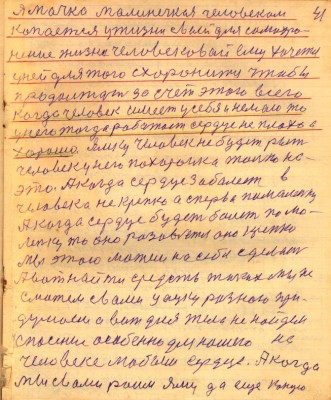 ямачка малинечкая человеком
капается у жизни своей для самахра-
нение жизни человеков ой ему хочется
унего для того схоронить чтобы
продолжать за счет этого всего
Когда человек имеет у себя не мало то
у него тогда работает сердце не плохо а
хорошо. Ямку человек не будет рыть
человеку него похоронка только на-
это. А когда сердце заболеет в
человека не крепко а сперва помаленку
А когда сердце будет болеть пома-
ленку то оно разовьется оно крепко
мы этого можем на себе сделать
А вот найти средств таких мы не
сможем с вами науку разного при-
думаем а вот для тела не найдем
спасение особенно для нашего на
человеке слабым сердце. А когда
мы с вами роим яму да еще какую